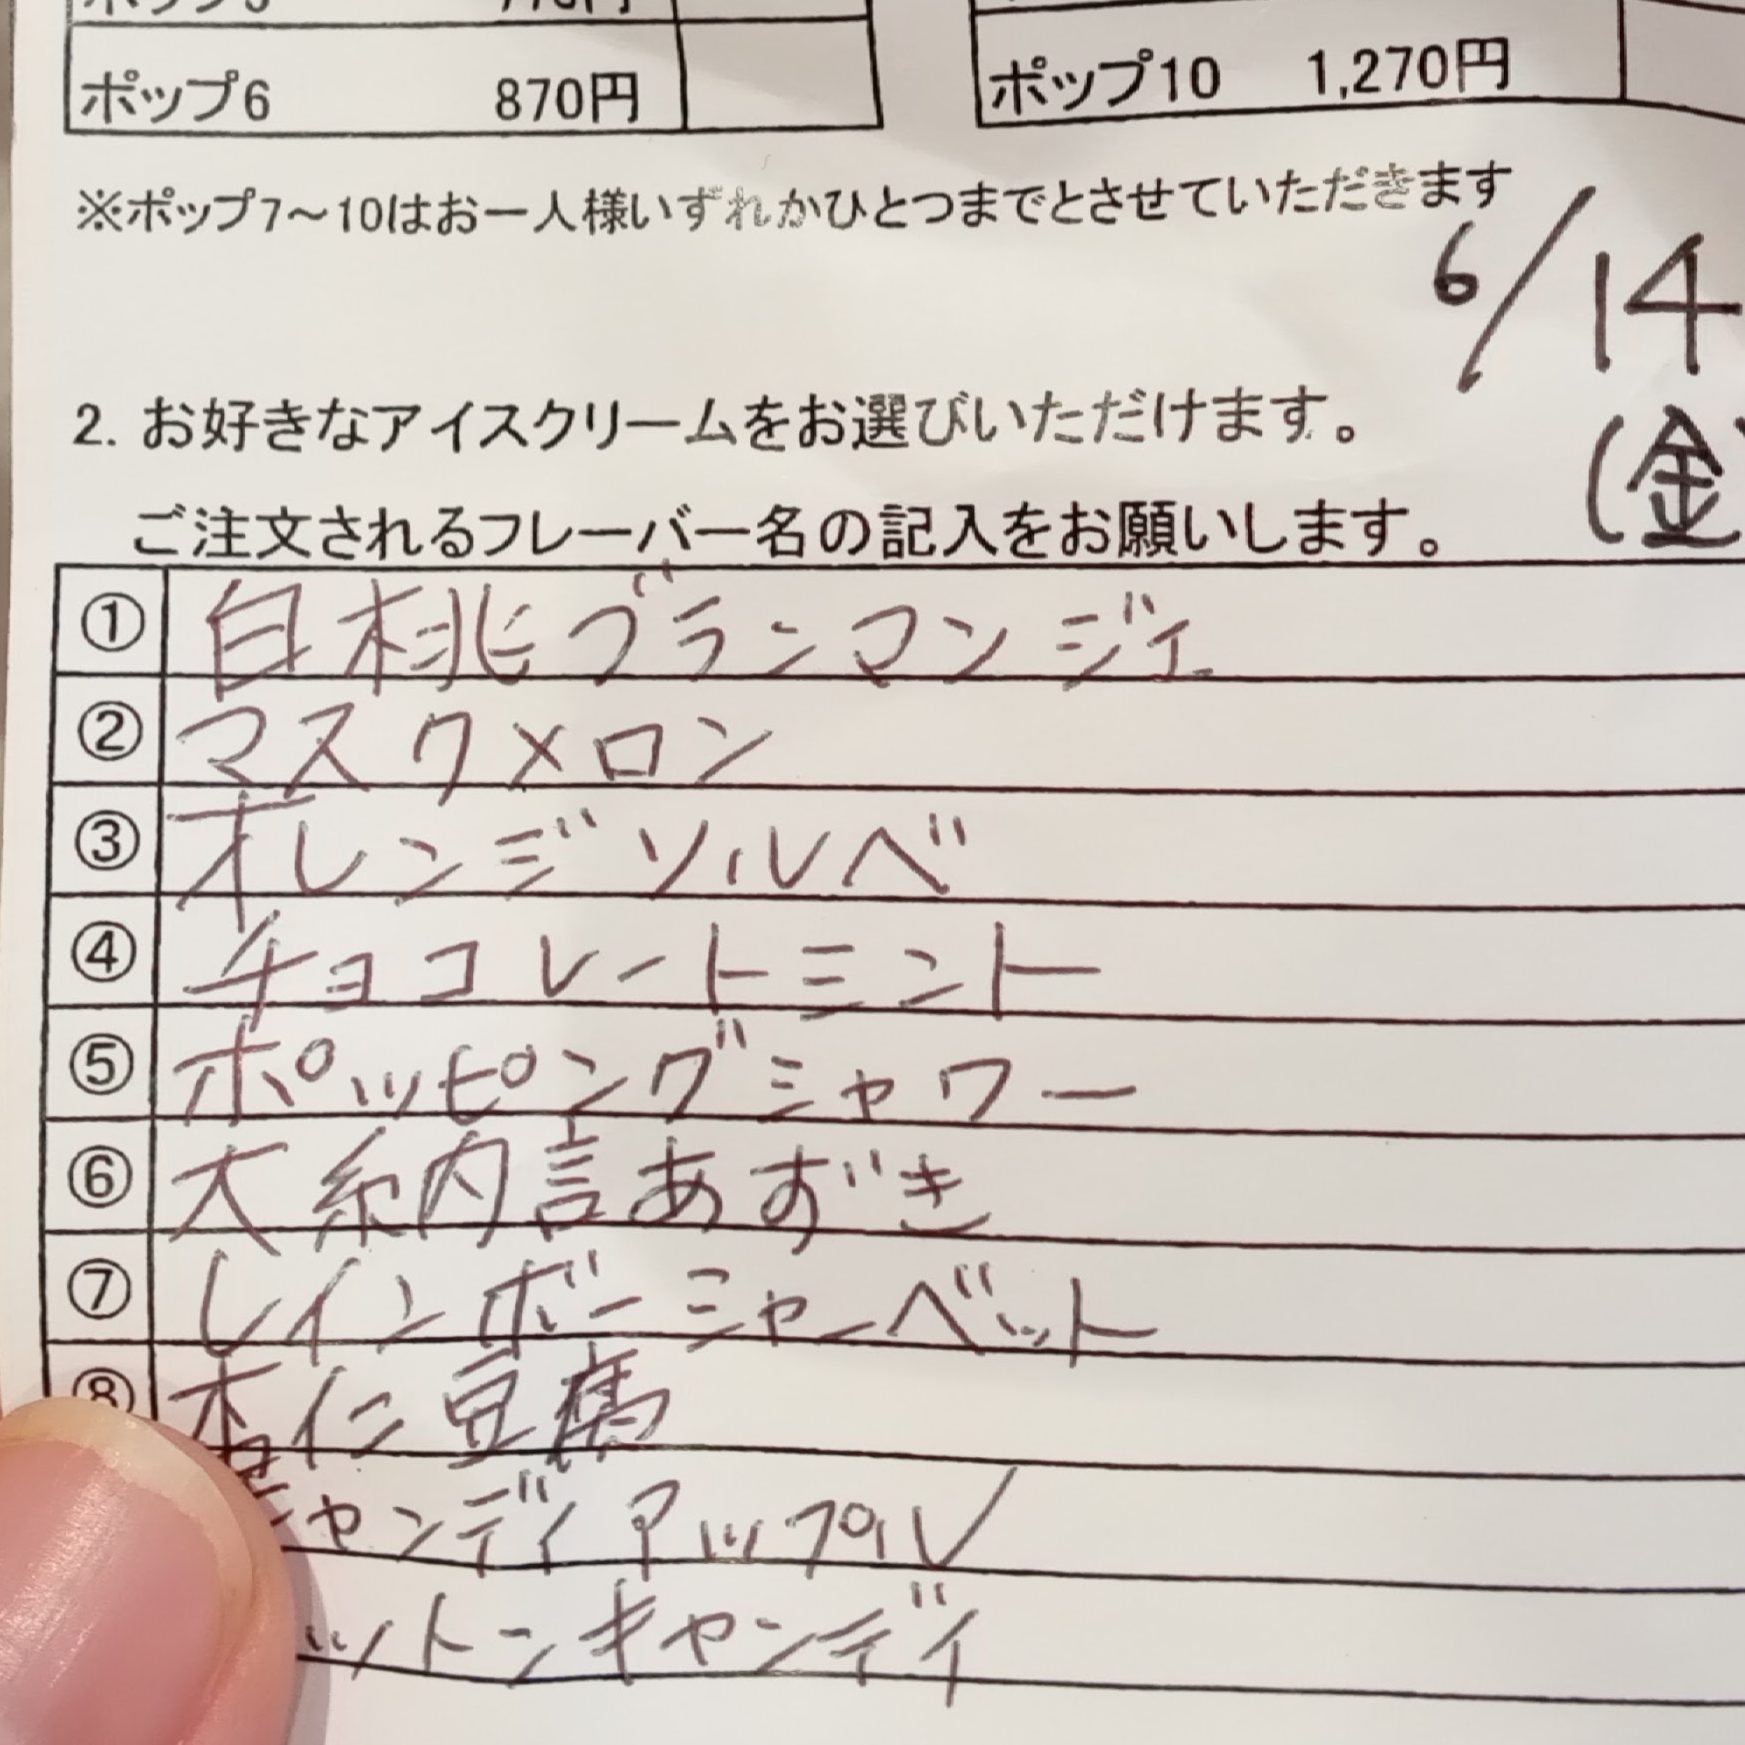 ポップ6 870円
ポップ10 1,270円
※ポップ7～10はお一人様いずれかひとつまでとさせていただきます
6/14
(金)
2. お好きなアイスクリームをお選びいただけます。
ご注文されるフレーバー名の記入をお願いします。
① 白桃ブランマンジェ
② マスクメロン
③ オレンジソルベ
④ チョコレートミント
⑤ ポッピングシャワー
⑥ 大納言あずき
⑦ レインボーシャーベット
⑧ 杏仁豆腐
キャンディアップル
ットンキャンディ